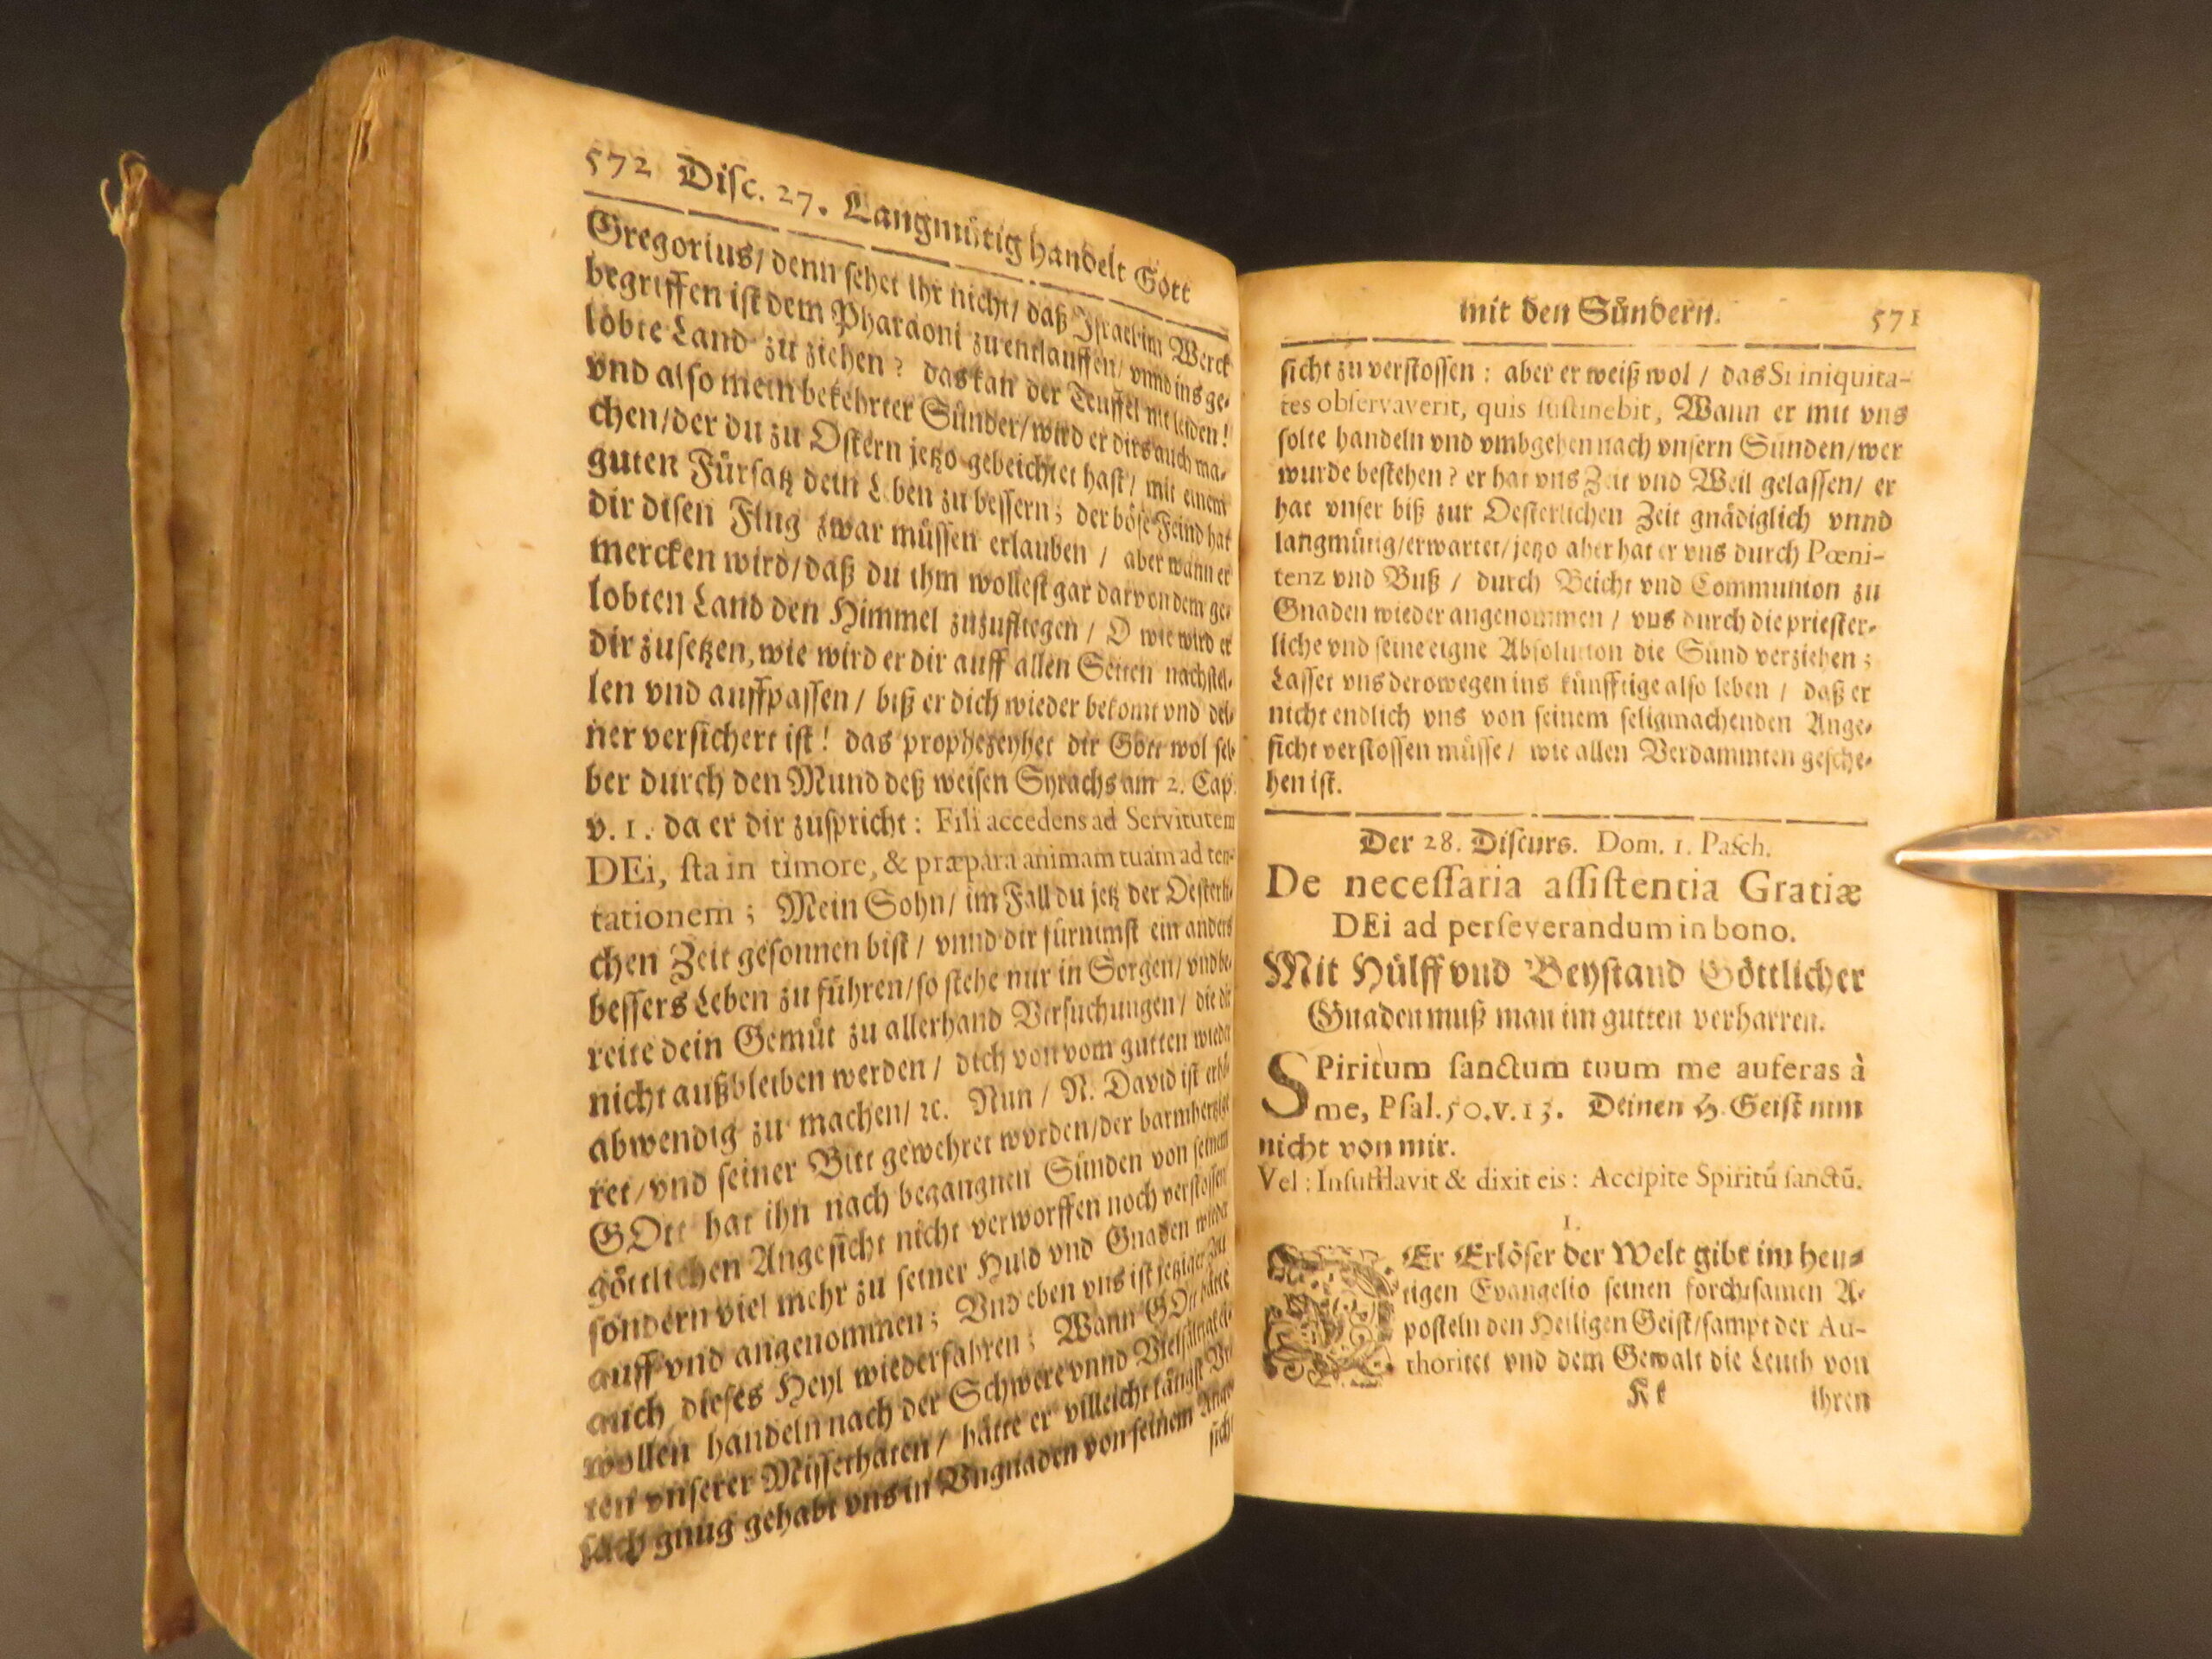 572 Disc. 27. Langmütig handelt Gott
Gregorius/ denn sehet ihr nicht/ daß Israel im Werck
begriffen ist dem Pharaoni zu entlauffen/ vnnd ins ge-
lobte Land zu ziehen? das kan der Teuffel nit leiden!
vnd also mein bekehrter Sünder/ wird er dirs auch ma-
chen/ der du zu Ostern jetzo gebeichtet hast/ mit einem
guten Fürsatz dein Leben zu bessern; der böse Feind hat
dir disen Flug zwar müssen erlauben / aber wann er
mercken wird/ daß du ihm wollest gar darvon dem ge-
lobten Land den Himmel zuzufliegen / O wie wird er
dir zusetzen, wie wird er dir auff allen Seiten nachstel-
len vnd auffpassen / biß er dich wieder bekomt vnd dei-
ner versichert ist! das prophezeyhet dir Gott wol sel-
ber durch den Mund deß weisen Syrachs am 2. Cap.
v. 1. da er dir zuspricht: Fili accedens ad Servitutem
DEi, sta in timore, & præpara animam tuam ad ten-
tationem; Mein Sohn/ im Fall du jetz der Oesterli-
chen Zeit gesonnen bist / vnnd dir fürnimst ein anders
bessers Leben zu führen/ so stehe nur in Sorgen/ vnd be-
reite dein Gemüt zu allerhand Versuchungen / die dir
nicht außbleiben werden / dich von vom gutten wieder
abwendig zu machen/ ꝛc. Nun / N. David ist erhö-
ret/ vnd seiner Bitt gewehret worden/ der barmhertzige
GOtt hat ihn nach begangnen Sünden von seinem
göttlichen Angesicht nicht verworffen noch verstossen
sondern viel mehr zu seiner Huld vnd Gnaden wieder
auff vnd angenommen; Vnd eben vns ist jetziger Zeit
auch dieses Heyl wiederfahren; Wann GOtt hätte
wollen handeln nach der Schwere vnnd Vielfältigkei-
ten vnserer Missethaten/ hätte er villeicht längst Vr-
sach gnug gehabt vns in Vngnaden von seinem Ange-
sicht
mit den Sündern. 571
sicht zu verstossen: aber er weiß wol / das Si iniquita-
tes observaverit, quis sustinebit, Wann er mit vns
solte handeln vnd vmbgehen nach vnsern Sünden/ wer
wurde bestehen? er hat vns Zeit vnd Weil gelassen/ er
hat vnser biß zur Oesterlichen Zeit gnädiglich vnnd
langmütig/ erwartet/ jetzo aber hat er vns durch Pœni-
tenz vnd Buß / durch Beicht vnd Communion zu
Gnaden wieder angenommen / vns durch die priester-
liche vnd seine eigne Absolution die Sünd verziehen;
Lasset vns derowegen ins künfftige also leben / daß er
nicht endlich vns von seinem seligmachenden Ange-
sicht verstossen müsse / wie allen Verdammten gesche-
hen ist.
Der 28. Discurs. Dom. 1. Pasch.
De necessaria assistentia Gratiæ
DEi ad perseverandum in bono.
Mit Hülff vnd Beystand Göttlicher
Gnaden muß man im gutten verharren.
SPiritum sanctum tuum me auferas à
me, Psal. 50. v. 13. Deinen H. Geist nim
nicht von mir.
Vel: Insufflavit & dixit eis: Accipite Spiritū sanctū.
1.
DEr Erlöser der Welt gibt im heu-
tigen Evangelio seinen forchtsamen A-
posteln den Heiligen Geist/ sampt der Au-
thoritet vnd dem Gewalt die Leuth von
Kk ihren